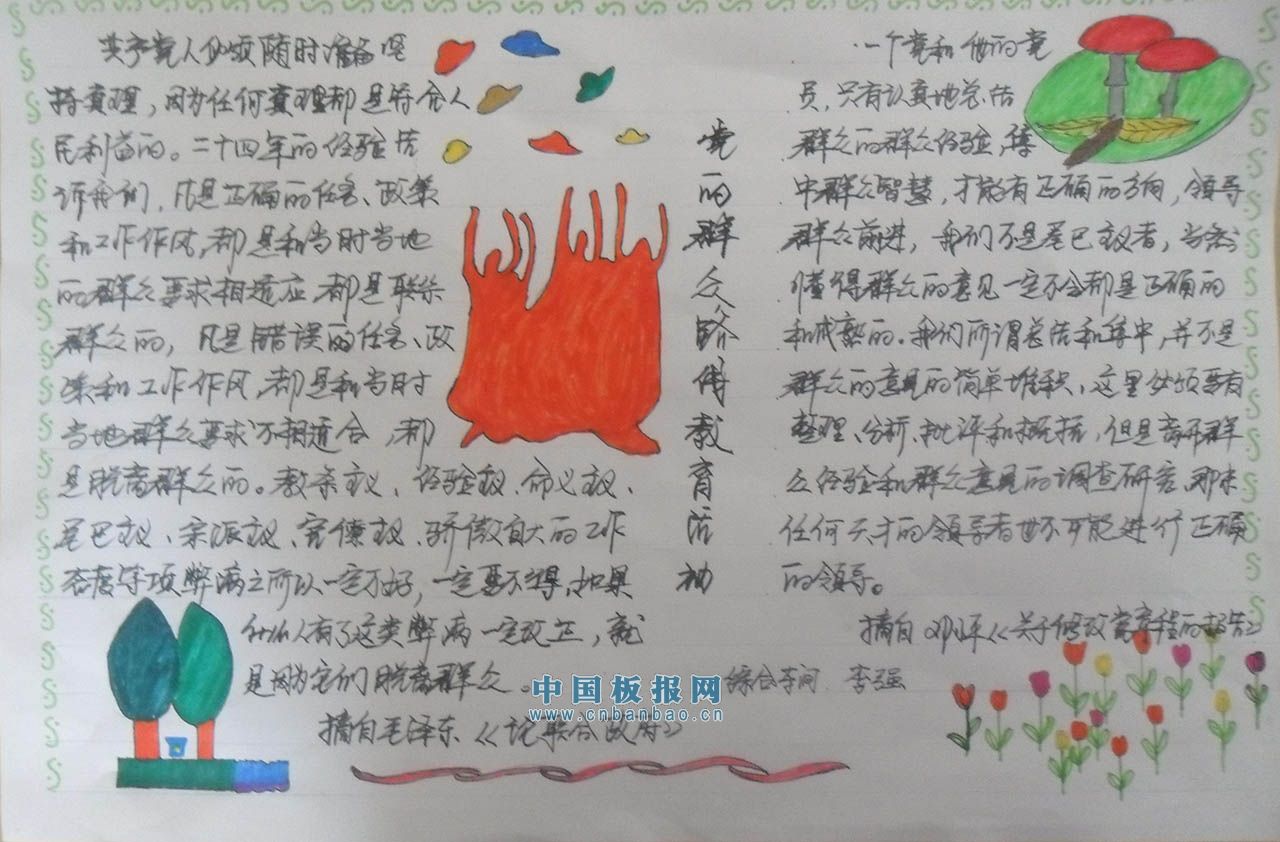 共产党人必须随时准备坚
持真理，因为任何真理都是符合人
民利益的。二十四年的经验告
诉我们，凡是正确的任务、政策
和工作作风，都是和当时当地
的群众要求相适应，都是联系
群众的，凡是错误的任务、政
策和工作作风，都是和当时
当地群众要求不相适合，都
是脱离群众的。教条主义、经验主义、命令主义、
尾巴主义、宗派主义、官僚主义、骄傲自大的工作
态度等项弊病之所以一定不好，一定要不得，如果
什么人有了这类弊病一定改正，就
是因为它们脱离群众。
摘自毛泽东《论联合政府》
党的群众路传教育活动
一个党和他的党
员，只有认真地总结
群众的群众经验，集
中群众智慧，才能有正确的方向，领导
群众前进，我们不是尾巴主义者，当然
懂得群众的意见一定不会都是正确的
和成熟的。我们所谓总结和集中，并不是
群众的意见的简单堆积，这里必须要有
整理、分析、批评和概括，但是离开群
众经验和群众意见的调查研究，那末
任何天才的领导者也不可能进行正确
的领导。
摘自邓小平《关于修改党章程的报告》
综合车间 李强
中国板报网
www.cnbanbao.cn